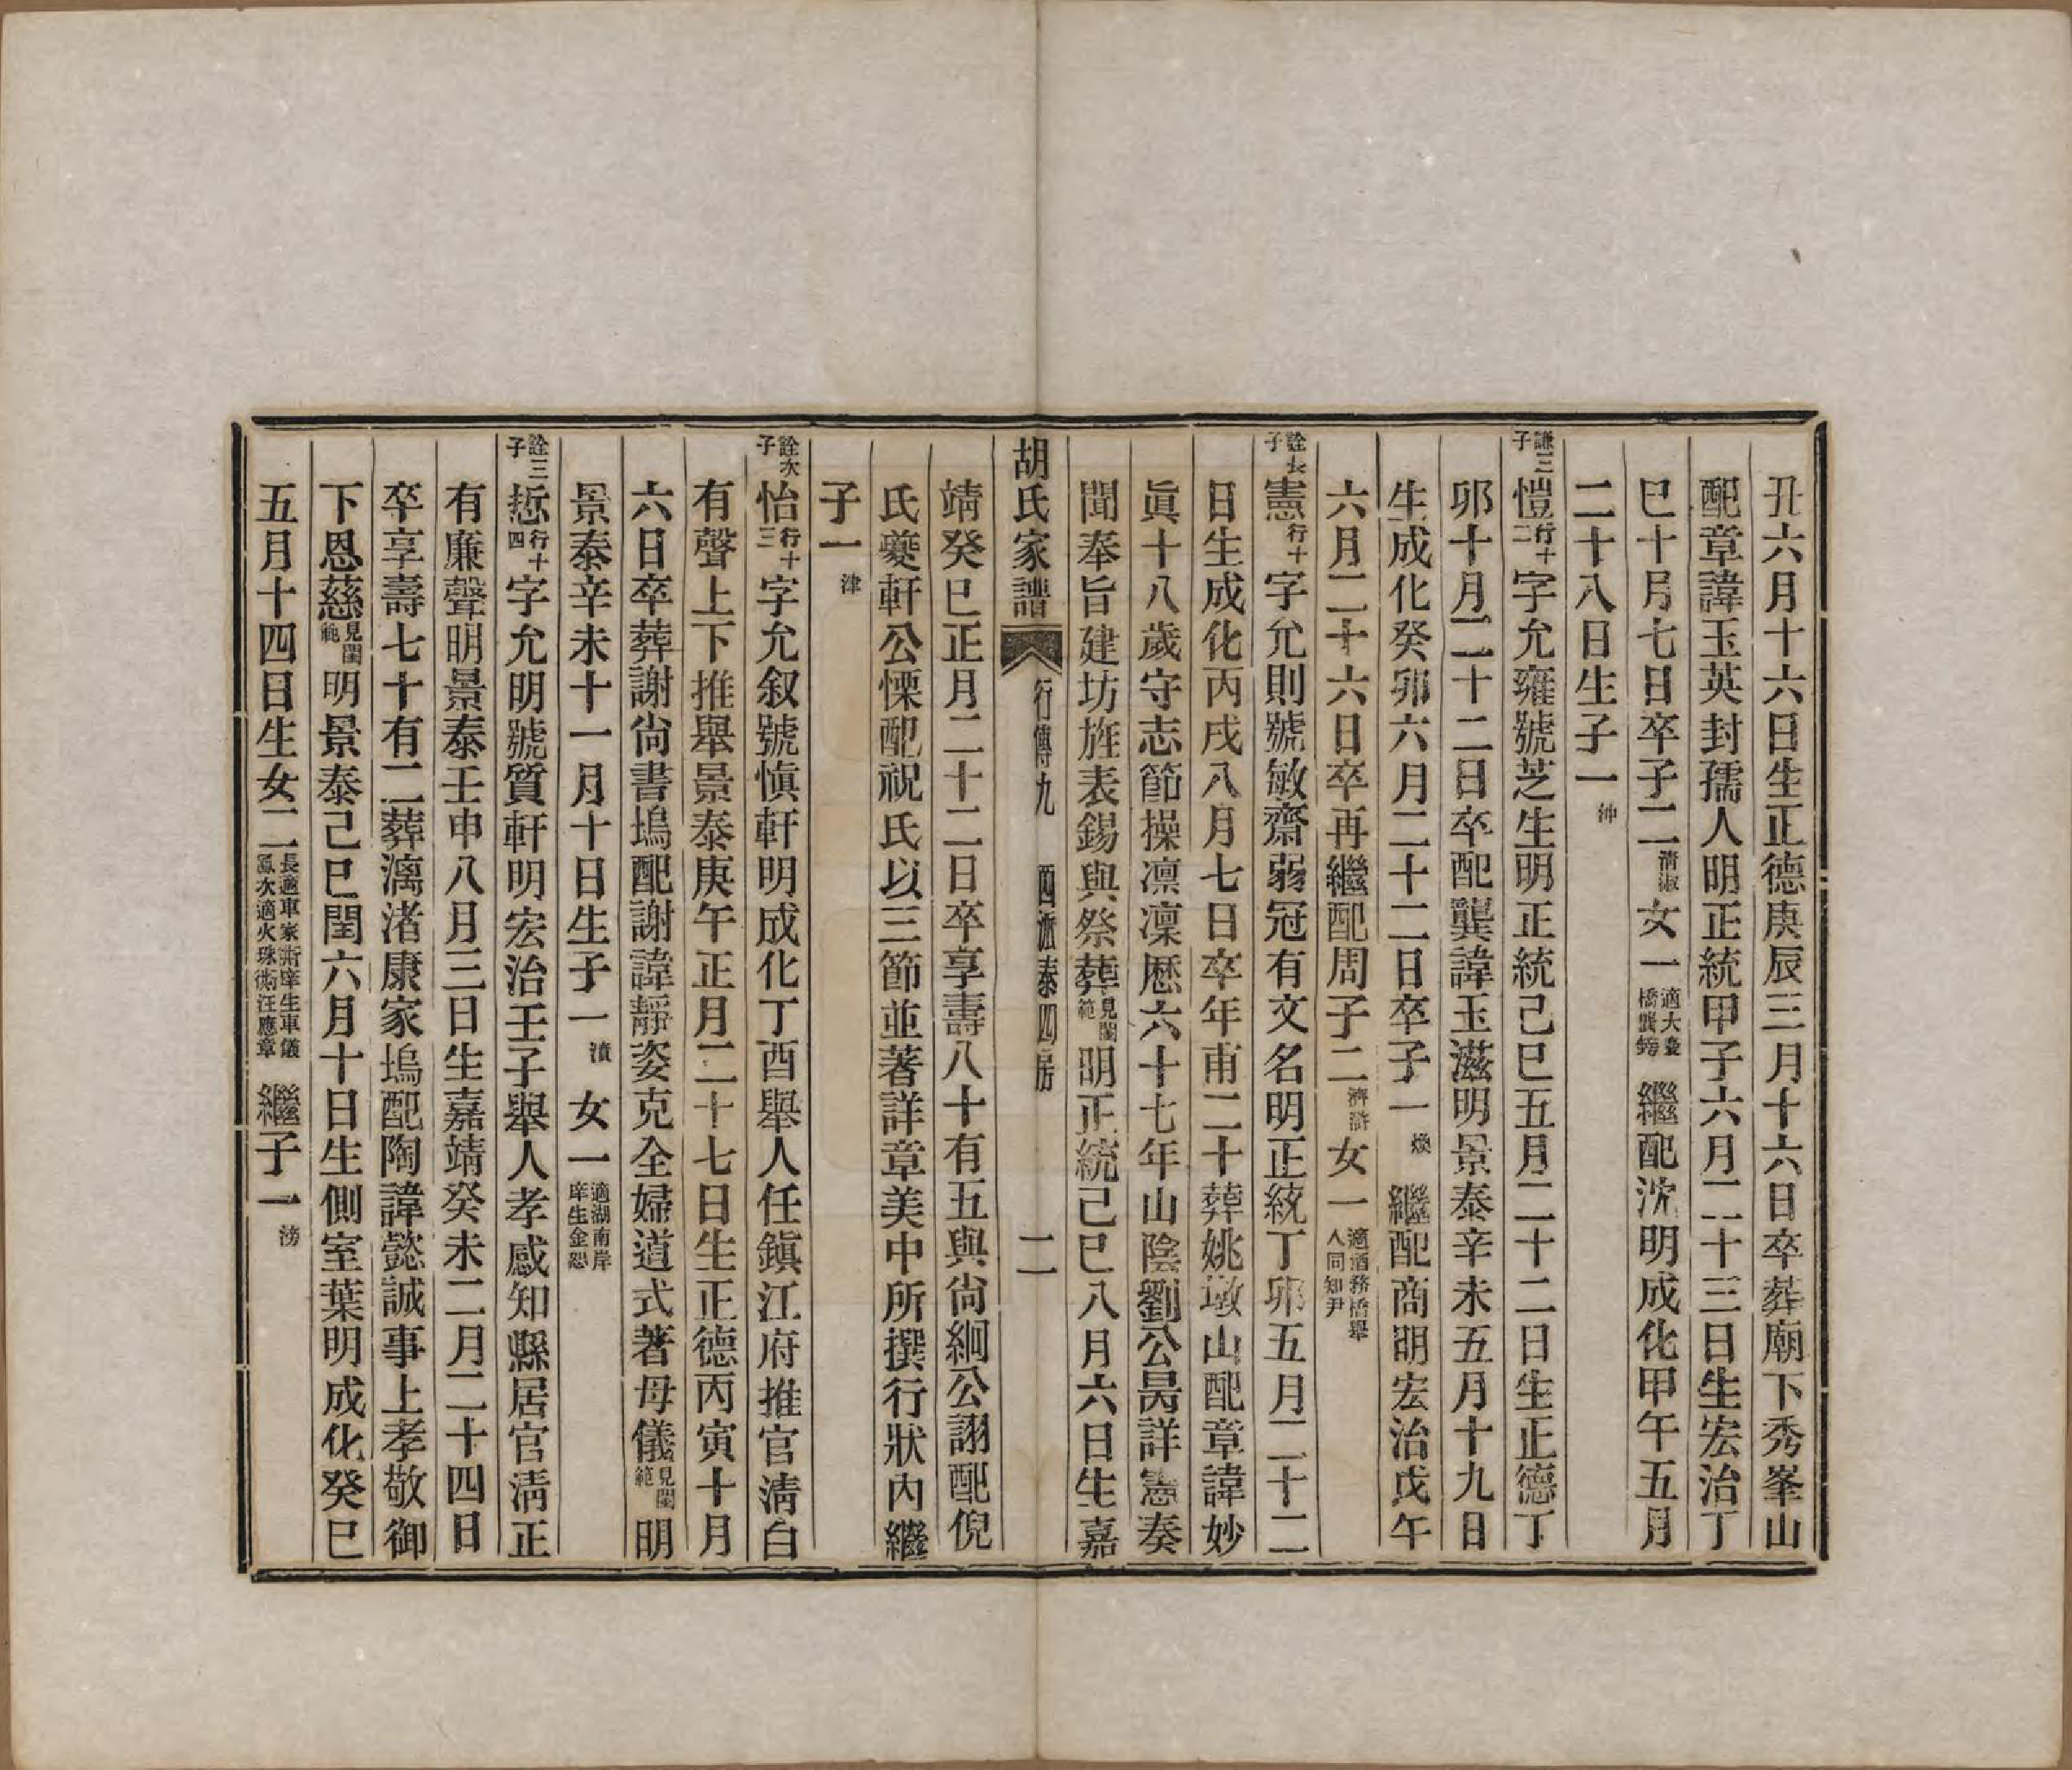 丑六月十六日生正德庚辰三月十六日卒葬廟下秀峯山
配章諱玉英封孺人明正統甲子六月二十三日生宏治丁
巳十月七日卒子二清淑女一適大婁橋龔鎊繼配沈明成化甲午五月
二十八日生子一沖
謙三子愷行十二字允雍號芝生明正統己巳五月二十二日生正德丁
卯十月二十二日卒配龔諱玉滋明景泰辛未五月十九日
生成化癸卯六月二十二日卒子一煥繼配商明宏治戊午
六月二十六日卒再繼配周子二濟滸女一適酒務橋舉人同知尹
詮長子憲行十字允則號敏齋弱冠有文名明正統丁卯五月二十二
日生成化丙戌八月七日卒年甫二十葬姚墩山配章諱妙
眞十八歲守志節操凛凜厯六十七年山陰劉公昺詳憲奏
聞奉旨建坊旌表錫與祭葬見閫範明正統己巳八月六日生嘉
胡氏家譜 行傳九 四派泰四房 二
靖癸巳正月二十二日卒享壽八十有五與尙絅公詡配倪
氏夔軒公慄配祝氏以三節並著詳章美中所撰行狀內繼
子一津
詮次子怡行十三字允叙號愼軒明成化丁酉舉人任鎭江府推官淸白
有聲上下推舉景泰庚午正月二十七日生正德丙寅十月
六日卒葬謝尙書塢配謝諱靜姿克全婦道式著母儀見閫範明
景泰辛未十一月十日生子一濆女一適湖南岸庠生金恕
詮三子惁行十四字允明號質軒明宏治壬子舉人孝感知縣居官淸正
有廉聲明景泰壬申八月三日生嘉靖癸未二月二十四日
卒享壽七十有二葬漓渚康家塢配陶諱懿誠事上孝敬御
下恩慈見閫範明景泰己巳閏六月十日生側室葉明成化癸巳
五月十四日生女二長適車家衖庠生車儀鳳次適火珠衖汪應章繼子一滂